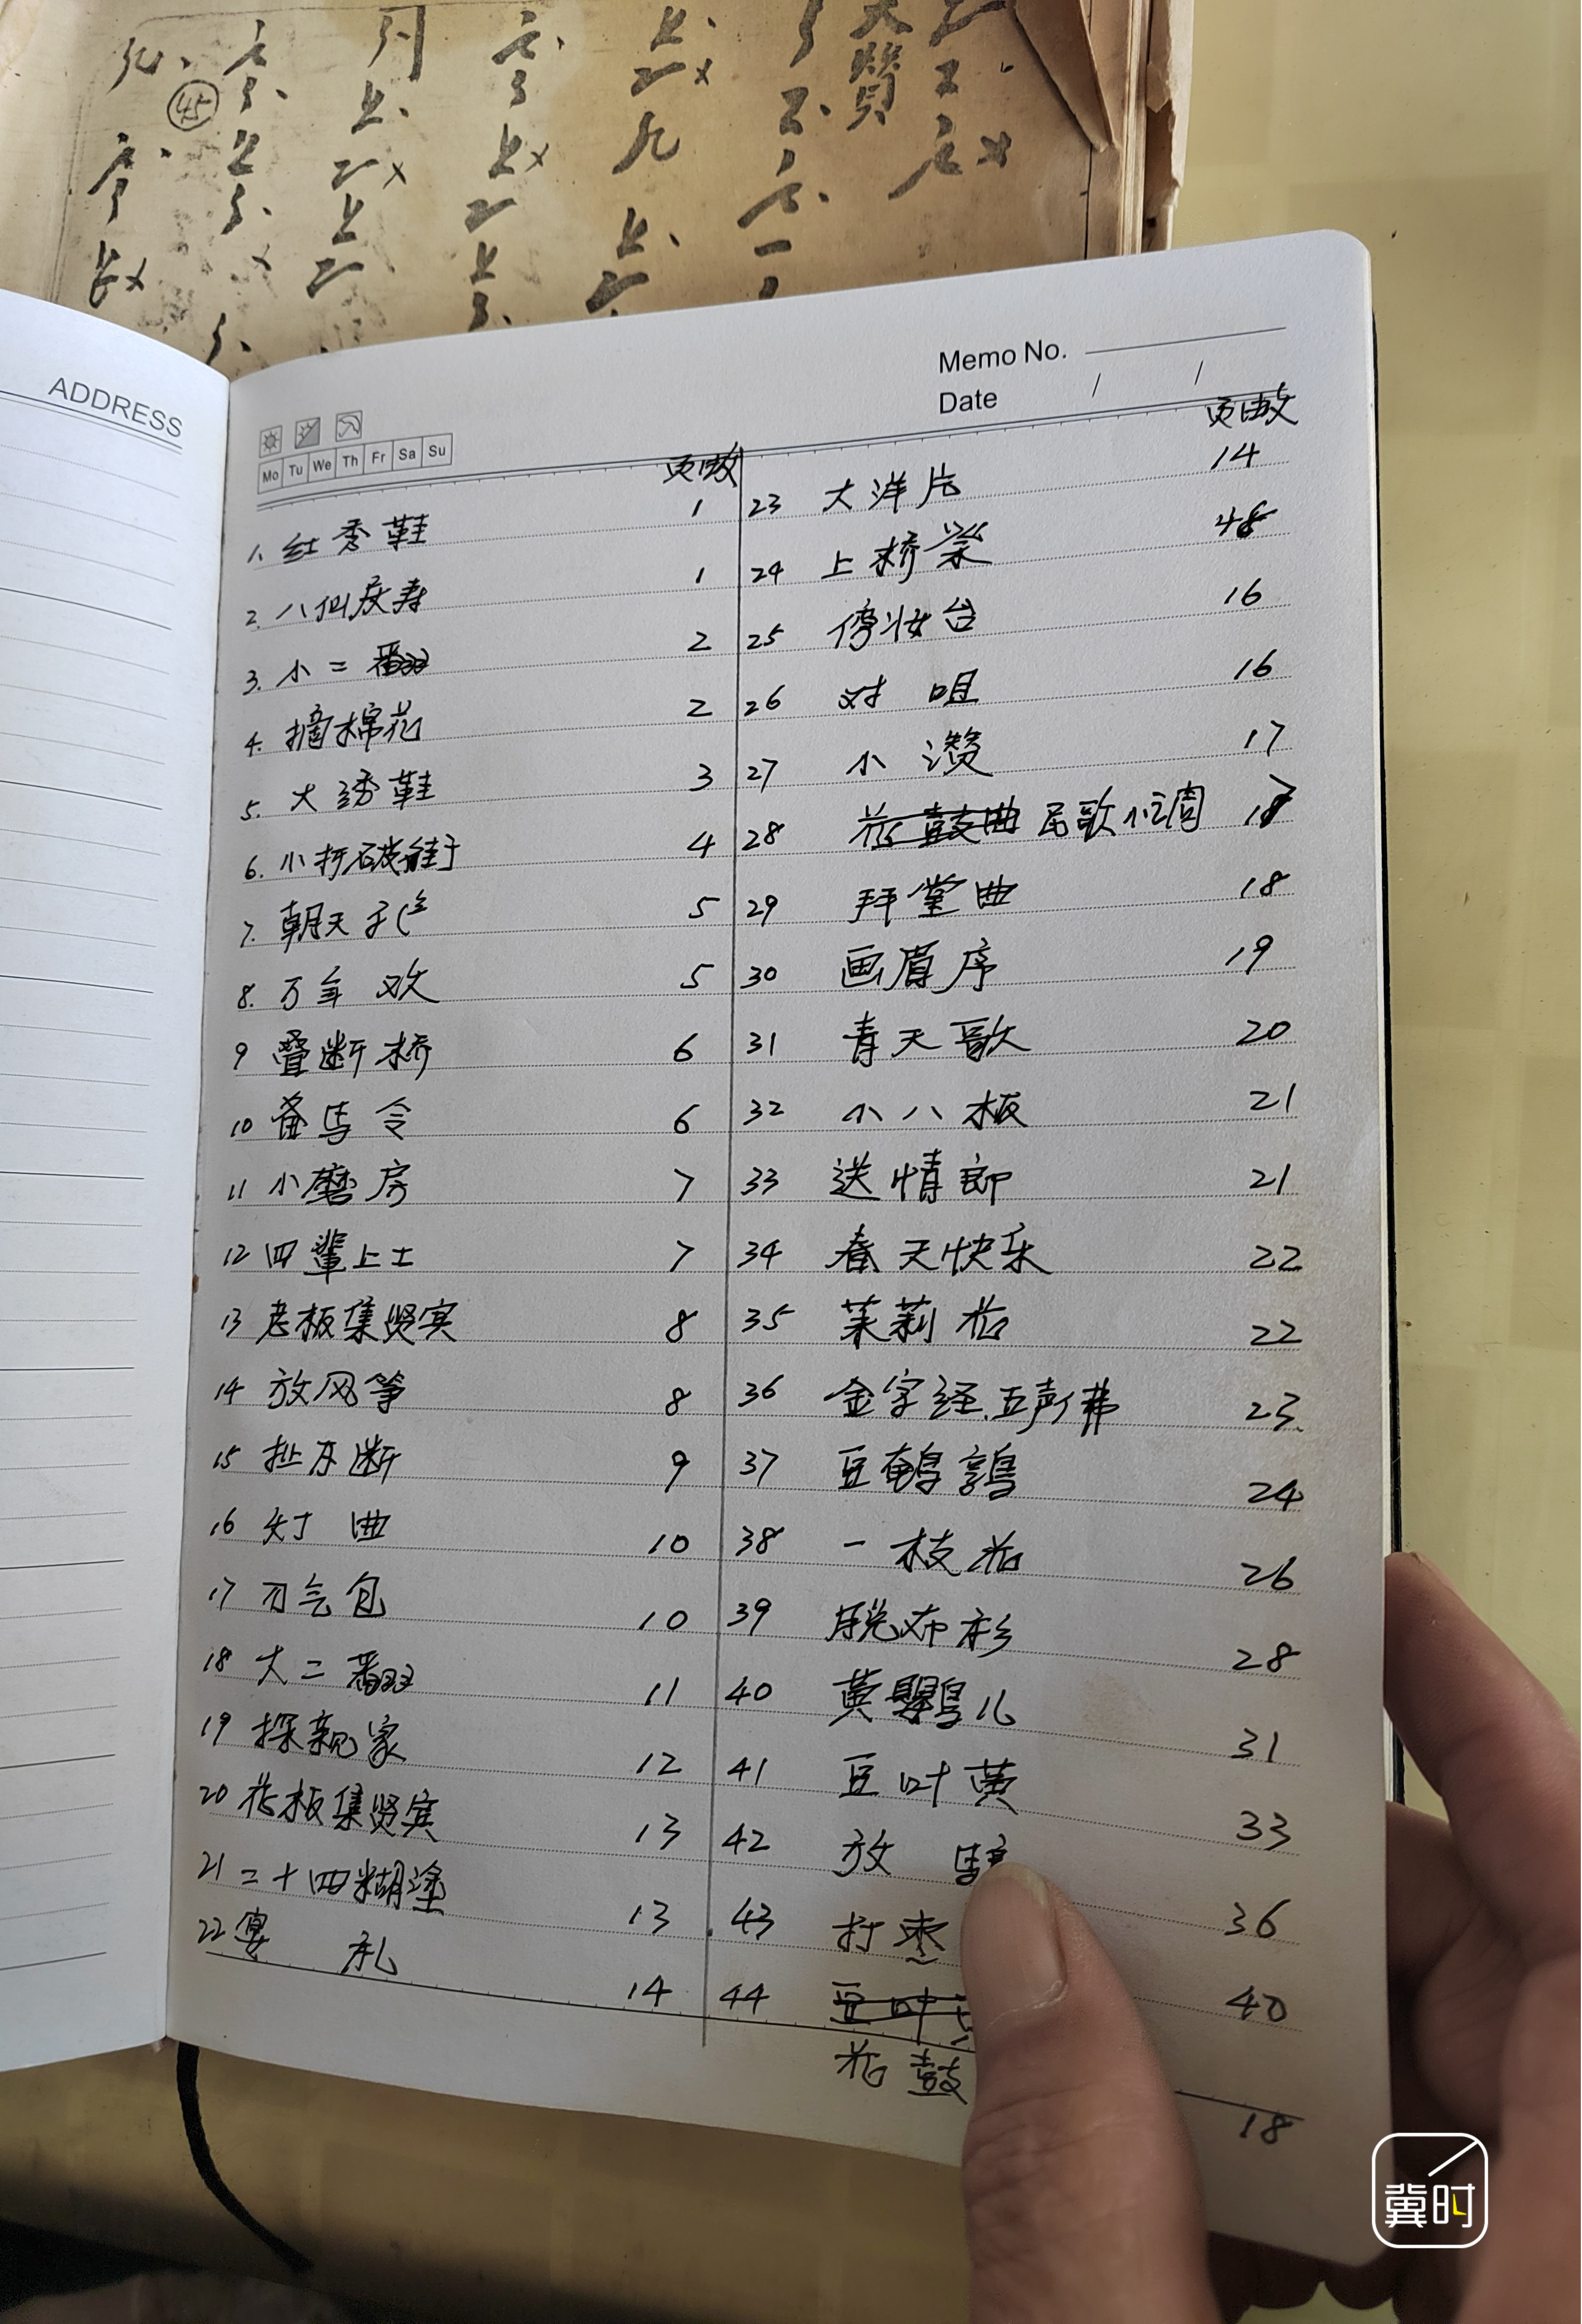 大贊
45
ADDRESS
Memo No.
Date / /
Mo Tu We Th Fr Sa Su
页数
1. 红秀鞋 1
2. 八仙庆寿 1
3. 小二番 2
4. 摘棉花 2
5. 大绣鞋 3
6. 小打破 4
7. 朝天子 5
8. 万年欢 5
9 叠断桥 6
10 备马令 6
11 小磨房 7
12 四辈上士 7
13 老板集贤宾 8
14 放风筝 8
15 扯不断 9
16 灯曲 10
17 刀气包 10
18 大二翻 11
19 探亲家 12
20 花板集贤宾 13
21 二十四糊涂 13
22 宴礼 14
页数
23 大洋片 14
24 上桥梁 48
25 傍妆台 16
26 对咀 16
27 小讚 17
28 花鼓曲 民歌小调 18
29 拜堂曲 18
30 画眉序 19
31 青天歌 20
32 小八板 21
33 送情郎 21
34 春天快乐 22
35 茉莉花 22
36 金字经.五声佛 23
37 豆鹌鹑 24
38 一枝花 26
39 脱布衫 28
40 黄鸚儿 31
41 豆叶黄 33
42 放 36
43 打枣 40
44 豆叶
花鼓 18
冀时